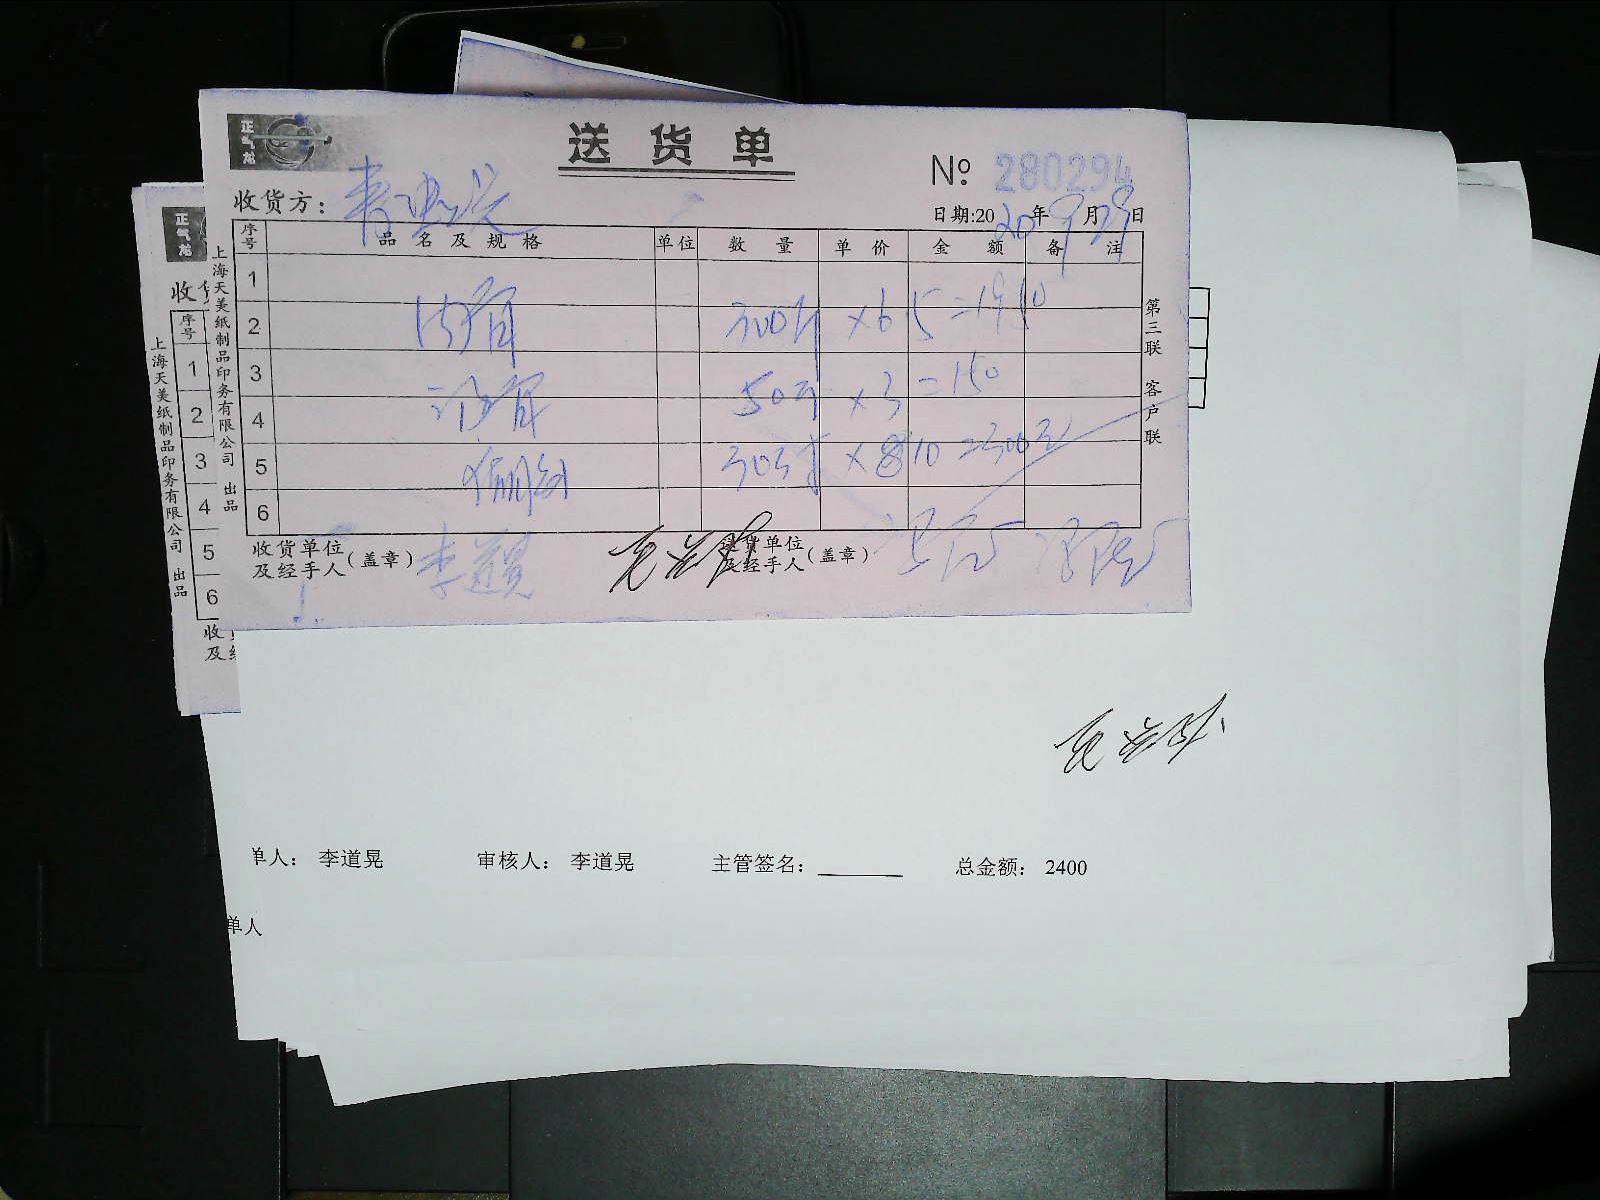 正气龙
送货单
№ 280294
收货方：
日期:2020年9月29日
序号 品名及规格 单位 数量 单价 金额 备注
1
2 300斤 ×6.5=1950
3
4 50斤 ×3=150
5 ×10=300元
6
收货单位及经手人(盖章) 李道晃 送货单位及经手人(盖章)
第三联 客户联
上海天美纸制品印务有限公司 出品
正气龙
收货
序号
1
2
3
4
5
6
收
及经
上海天美纸制品印务有限公司 出品
单人： 李道晃 审核人： 李道晃 主管签名： 总金额： 2400
单人